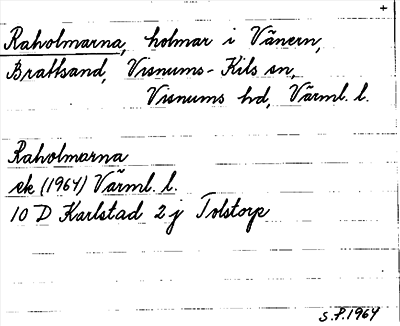 +
Raholmarna, holmar i Vänern,
Brattsand, Visnums-Kils sn,
Visnums hd, Värml. l.
Raholmarna
ek (1964) Värml. l.
10 D Karlstad 2 j Tolstorp
S.P. 1964